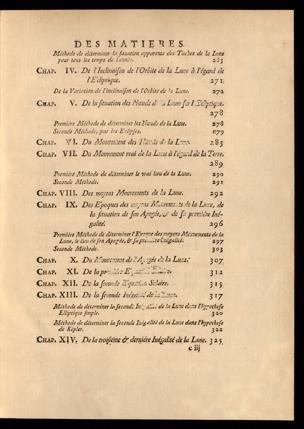 DES MATIERES.
Méthode de déterminer la situation apparente des Taches de la Lune
pour tous les temps de l'année. 265
CHAP. IV. De l'Inclinaison de l'Orbite de la Lune à l'égard de
l'Ecliptique. 271
De la Variation de l'inclinaison de l'Orbite de la Lune. 272
CHAP. V. De la situation des Nœuds de la Lune sur l'Ecliptique.
278
Premiere Méthode de déterminer les Nœuds de la Lune. 278
Seconde Méthode, par les Eclipses. 279
CHAP. VI. Du Mouvement des Nœuds de la Lune. 283
CHAP. VII. Du Mouvement vrai de la Lune à l'égard de la Terre.
289
Premiere Méthode de déterminer le vrai lieu de la Lune. 290
Seconde Méthode. 291
CHAP. VIII. Des moyens Mouvements de la Lune. 292
CHAP. IX. Des Epoques des moyens Mouvements de la Lune, de
la situation de son Apogée, & de sa premiére Iné-
galité. 296
Premiere Méthode de déterminer l'Epoque des moyens Mouvements de la
Lune, le lieu de son Apogée, & sa premiére Inégalité. 297
Seconde Méthode. 303
CHAP. X. Du Mouvement de l'Apogée de la Lune. 307
CHAP. XI. De la premiére 312
CHAP. XII. De la seconde Equation Solaire. 315
CHAP. XIII. De la seconde Inégalité de la Lune. 317
Méthode de déterminer la seconde Inégalité de la Lune dans l'hypothese
Elliptique simple. 320
Méthode de déterminer la seconde Inégalité de la Lune dans l'hypothese
de Képler. 322
CHAP. XIV. De la troisiéme & derniére Inégalité de la Lune. 325
c iij